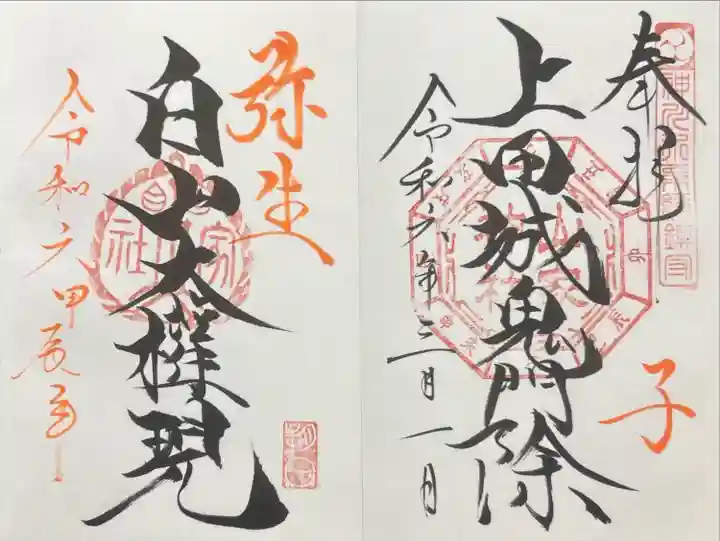 奉拝
上田城鬼門除
子
令和六年三月一日
弥生
白山大権現
令和六甲辰